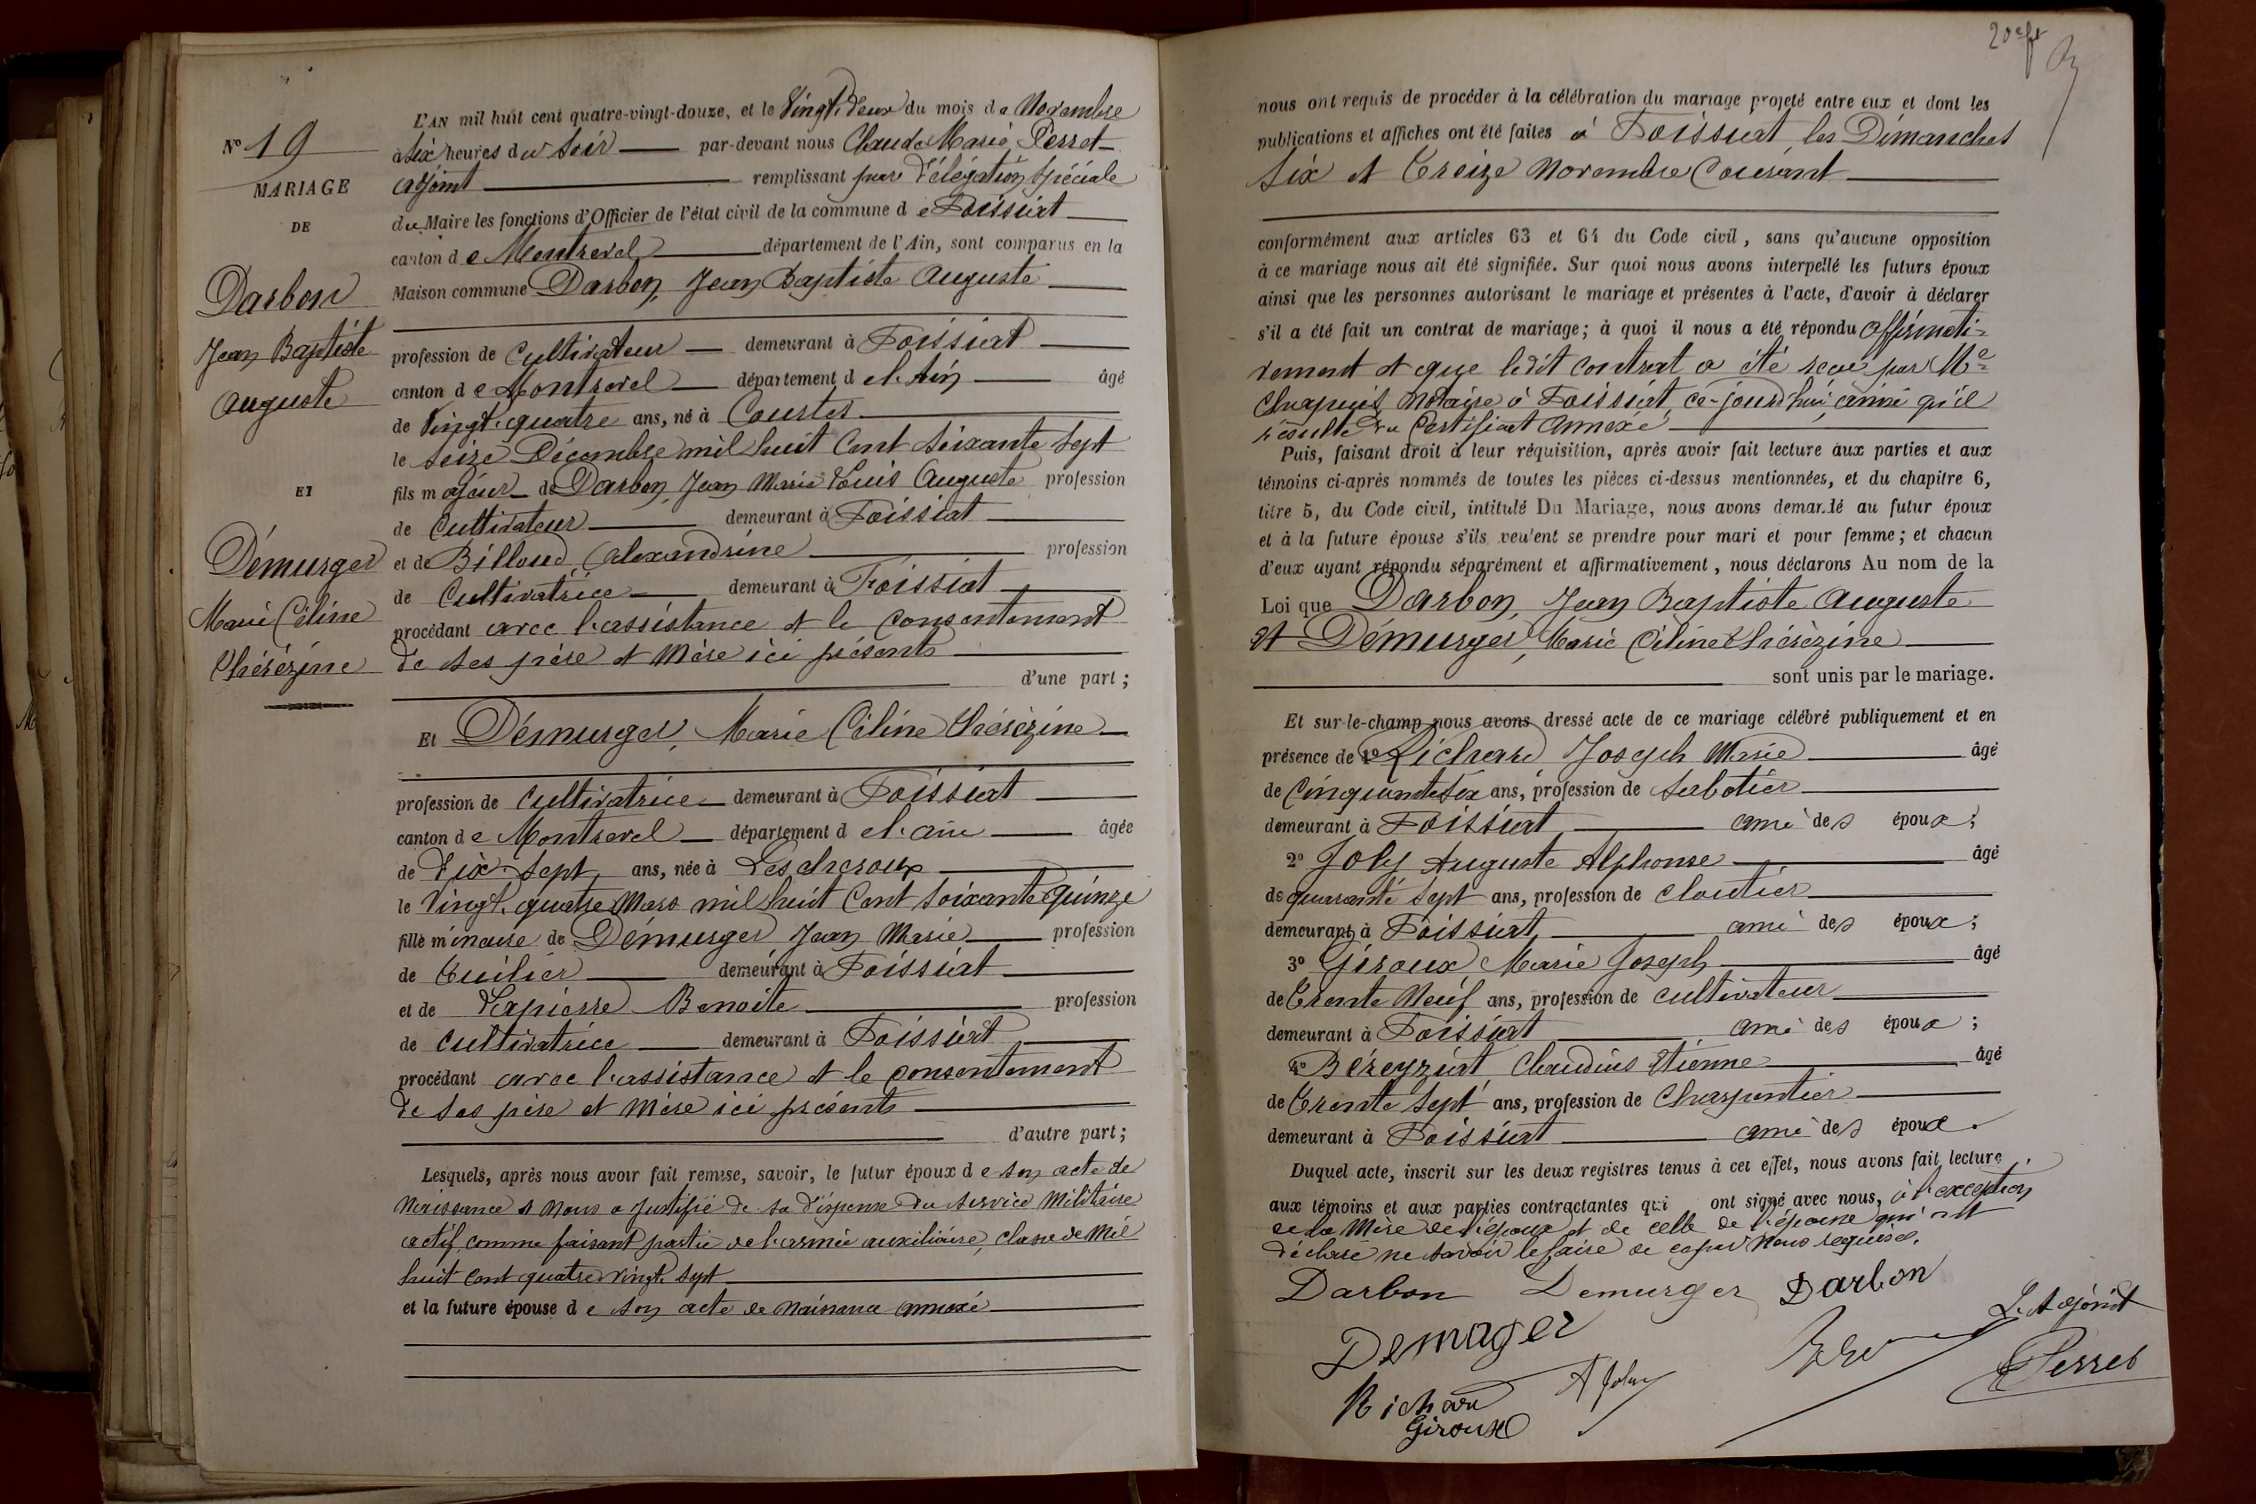 L'AN mil huit cent quatre-vingt-douze, et le Vingt-deux du mois de Novembre
N° 19
à Six heures du Soir par-devant nous Claude Marie Perret
MARIAGE
adjoint remplissant par délégation spéciale
DE
du Maire les fonctions d'Officier de l'état civil de la commune de Foissiat
canton de Montrevel département de l'Ain, sont comparus en la
Darbon
Maison commune Darbon, Jean Baptiste Auguste
Jean Baptiste
profession de Cultivateur demeurant à Foissiat
Auguste
canton de Montrevel département de l'Ain âgé
de Vingt-quatre ans, né à Courtes
le Seize Décembre mil huit Cent Soixante Sept
ET
fils majeur de Darbon, Jean Marie Louis Auguste profession
de Cultivateur demeurant à Foissiat
Démurger
et de Billoud Alexandrine profession
de Cultivatrice demeurant à Foissiat
Marie Céline
procédant avec l'assistance et le Consentement
Thérèzine
de ses père et Mère ici présents
d'une part ;
Et Démurger, Marie Céline Thérèzine
profession de Cultivatrice demeurant à Foissiat
canton de Montrevel département de l'ain âgée
de Dix-Sept ans, née à Lescheroux
le Vingt-quatre Mars mil huit Cent Soixante quinze
fille mineure de Démurger Jean Marie profession
de Tuilier demeurant à Foissiat
et de Lapierre Benoite profession
de Cultivatrice demeurant à Foissiat
procédant avec l'assistance et le consentement
de ses père et mère ici présents
d'autre part ;
Lesquels, après nous avoir fait remise, savoir, le futur époux de son acte de
Naissance et nous a justifié de sa dispense du service Militaire
actif comme faisant partie de l'armée auxiliaire, classe de Mil
huit Cent quatre vingt sept
et la future épouse de son acte de Naissance annexé
20e ft
nous ont requis de procéder à la célébration du mariage projeté entre eux et dont les
publications et affiches ont été faites à Foissiat les Dimanches
Six et Treize Novembre Courant
conformément aux articles 63 et 64 du Code civil, sans qu'aucune opposition
à ce mariage nous ait été signifiée. Sur quoi nous avons interpellé les futurs époux
ainsi que les personnes autorisant le mariage et présentes à l'acte, d'avoir à déclarer
s'il a été fait un contrat de mariage ; à quoi il nous a été répondu affirmati=
vement et que ledit contrat a été reçu par Me
Chapuis, Notaire à Foissiat, ce-jourd'hui, ainsi qu'il
résulte du Certificat Annexé
Puis, faisant droit à leur réquisition, après avoir fait lecture aux parties et aux
témoins ci-après nommés de toutes les pièces ci-dessus mentionnées, et du chapitre 6,
titre 5, du Code civil, intitulé Du Mariage, nous avons demandé au futur époux
et à la future épouse s'ils veulent se prendre pour mari et pour femme ; et chacun
d'eux ayant répondu séparément et affirmativement, nous déclarons Au nom de la
Loi que Darbon, Jean Baptiste Auguste
et Démurger, Marie Céline Thérèzine
sont unis par le mariage.
Et sur-le-champ nous avons dressé acte de ce mariage célébré publiquement et en
présence de 1° Richard Joseph Marie âgé
de Cinquante Six ans, profession de Sabotier
demeurant à Foissiat ami des époux ;
2° Joly Auguste Alphonse âgé
de quarante Sept ans, profession de cloutier
demeurant à Foissiat ami des époux ;
3° Giroux Marie Joseph âgé
de Trente Neuf ans, profession de Cultivateur
demeurant à Foissiat ami des époux ;
4° Béreyziat Claudius Etienne âgé
de Trente Sept ans, profession de Charpentier
demeurant à Foissiat ami des époux.
Duquel acte, inscrit sur les deux registres tenus à cet effet, nous avons fait lecture
aux témoins et aux parties contractantes qui ont signé avec nous, à l'exception
de la Mère de l'époux et de celle de l'épouse qui ont
déclaré ne savoir le faire de ce par nous requises.
Darbon Demurger Darbon
L'Adjoint
Demurger
Perret
A Joly
Richard
Giroux